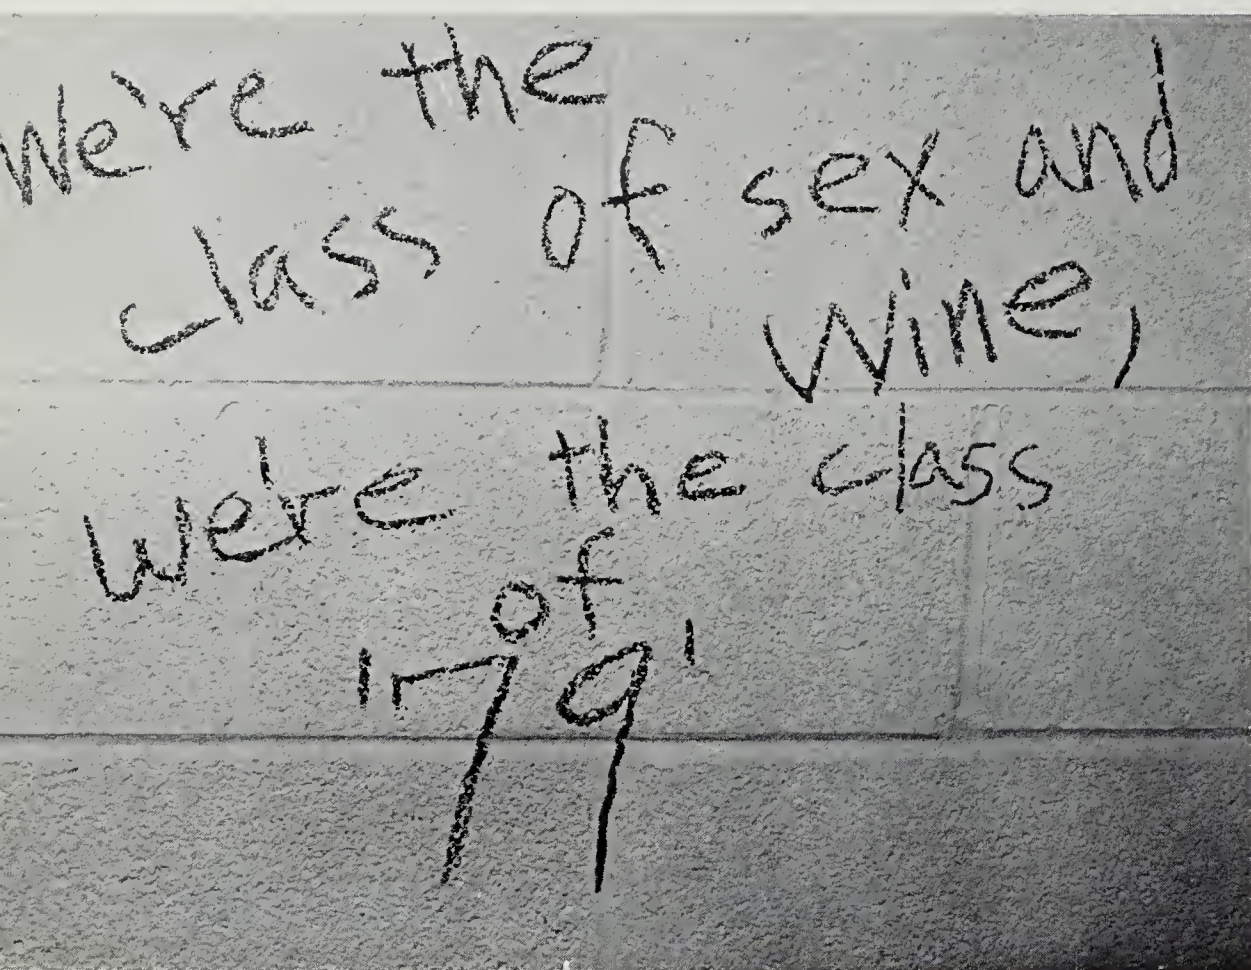 We're the
class of sex and
wine,
we're the class
of
'79'